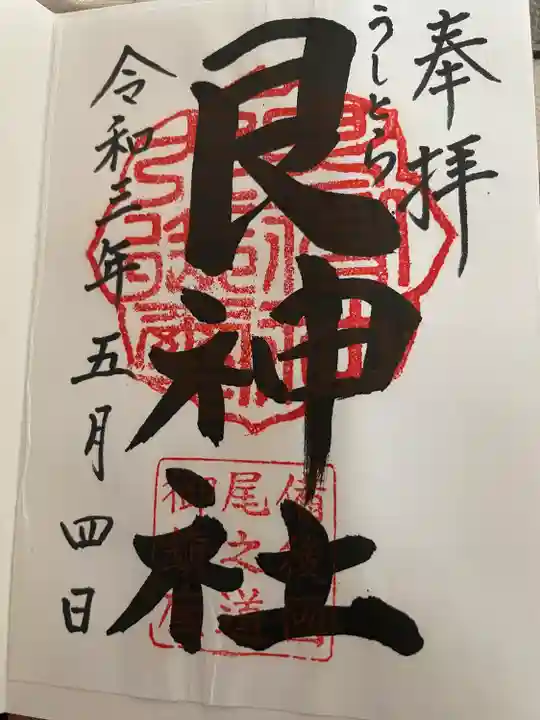 奉拝
うしとら
艮神社
令和三年五月四日
尾之道